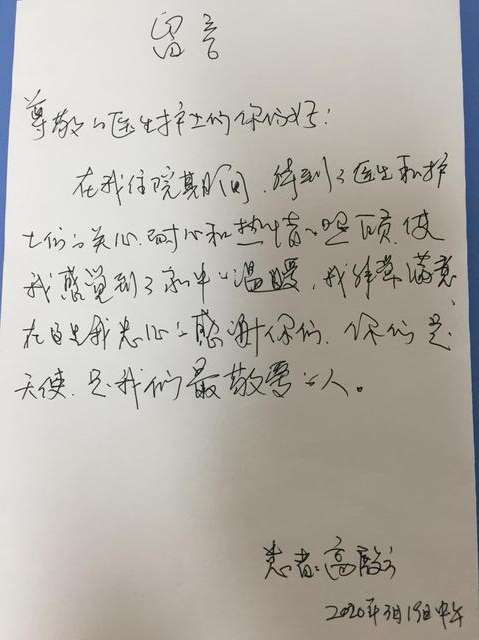 留言
尊敬的医生护士们你们好：
在我住院期间，得到了医生和护
士们的关心、耐心和热情的照顾，使
我感觉到了家中的温暖，我非常满意，
在这里我忠心的感谢你们，你们是
天使，是我们最敬爱的人。
患者：高
2020年3月19日中午